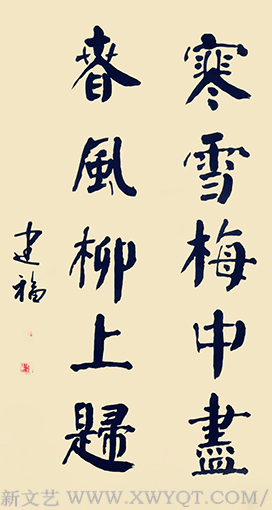 寒雪梅中盡
春風柳上歸
建福
新文艺 WWW.XWYQT.COM/